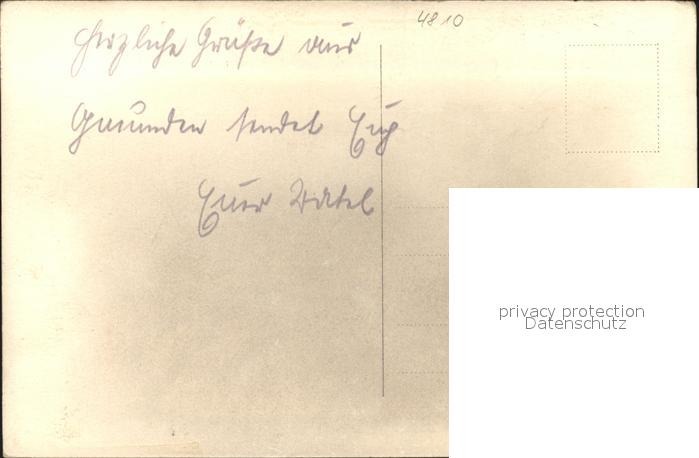 4810
Herzliche Grüße aus
Gmunden sendet Euch
Euer Vater
privacy protection
Datenschutz